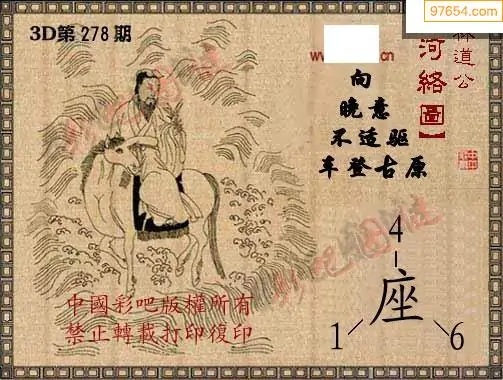 97654.com
3D第278期
www.
林道公
河络圖】
向
晚意
不适驱
车登古原
4
座
1
6
中國彩吧版權所有
禁止轉載打印復印